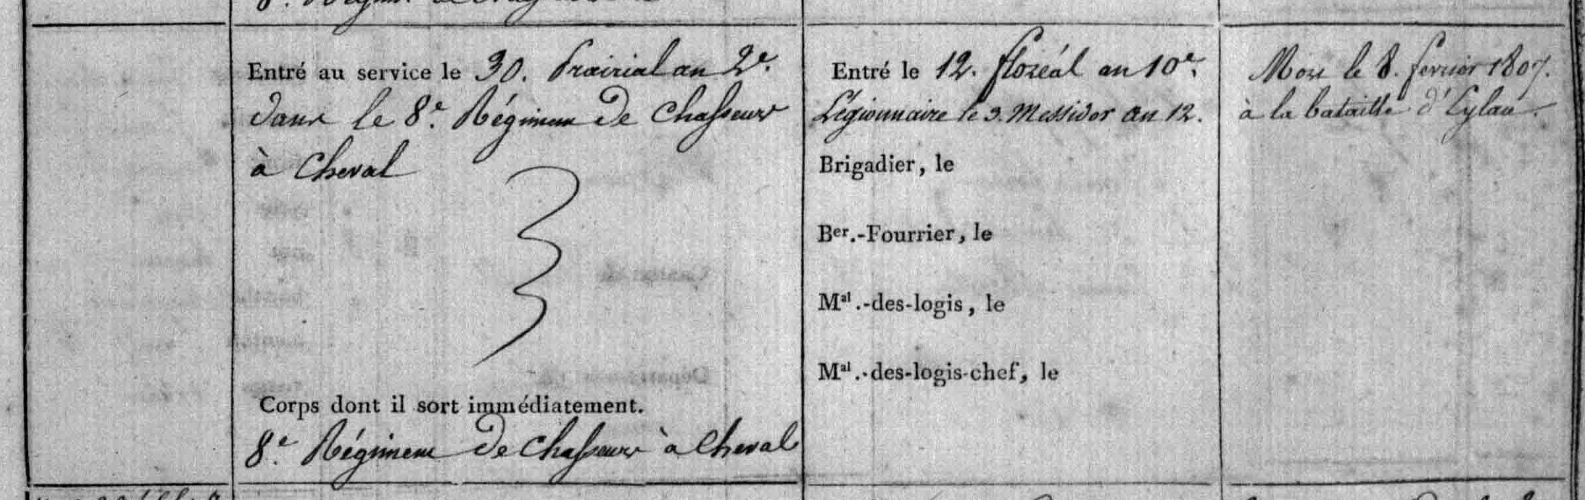 Entré au service le 30. Prairial an 2e.
dans le 8e. Régiment de Chasseurs
à Cheval
Corps dont il sort immédiatement.
8e. Régiment de Chasseurs à Cheval
Entré le 12. floréal an 10e.
Légionnaire le 3. Messidor an 12.
Brigadier, le
Ber.-Fourrier, le
Mal.-des-logis, le
Mal.-des-logis-chef, le
Mort le 8. fevrier 1807.
à la bataille d'Eylau.